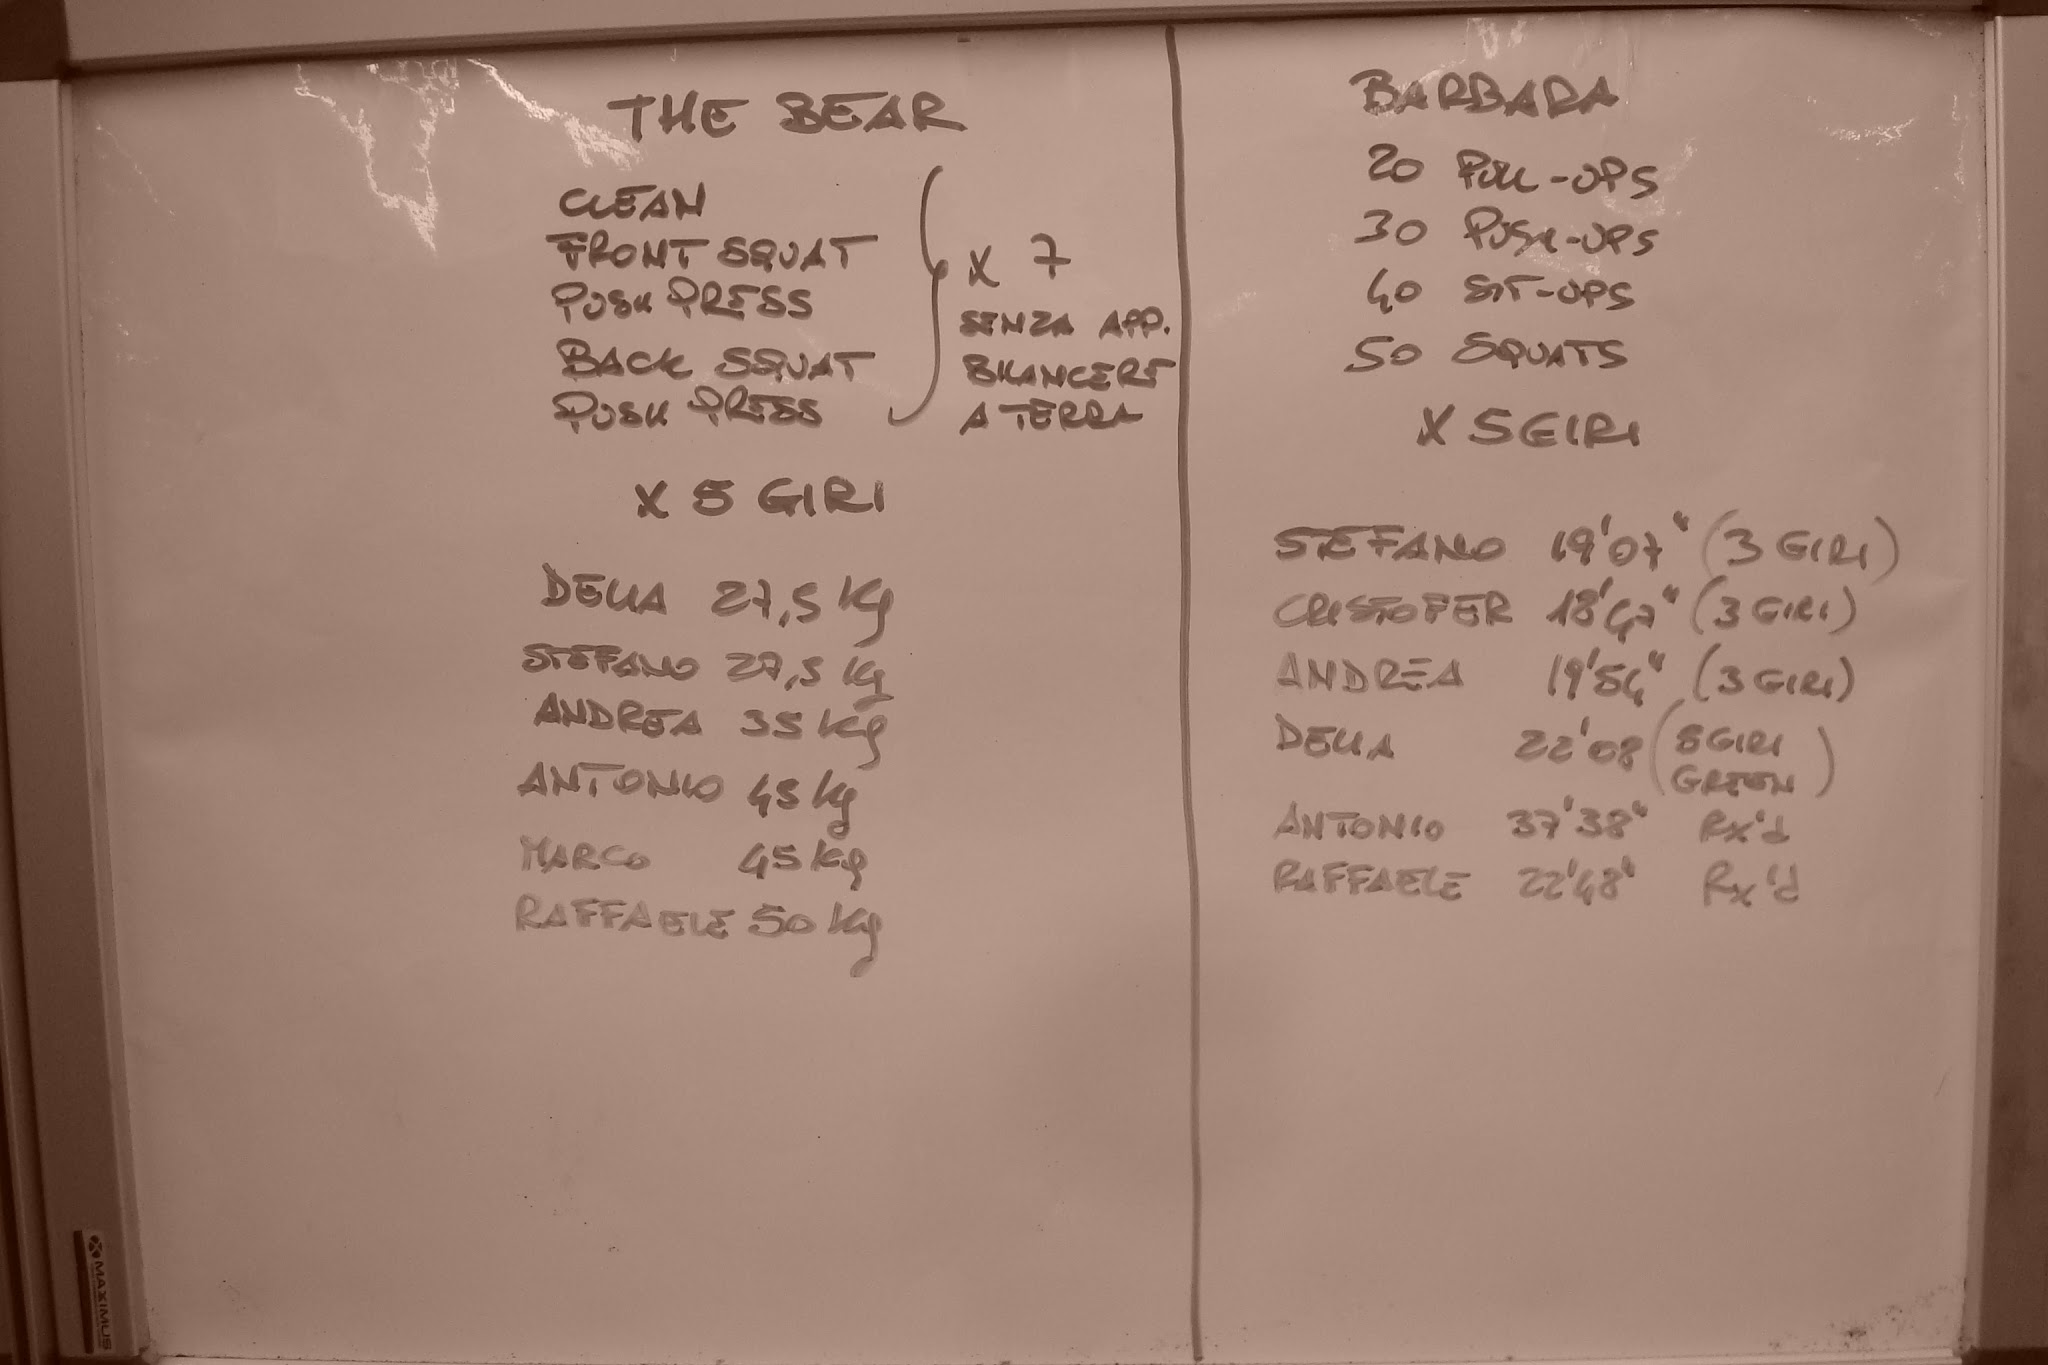 THE BEAR
CLEAN
FRONT SQUAT
PUSH PRESS
BACK SQUAT
PUSH PRESS
X 7
SENZA APP.
BILANCERE
A TERRA
X 5 GIRI
DELIA 27,5 Kg
STEFANO 27,5 Kg
ANDREA 35 Kg
ANTONIO 45 Kg
MARCO 45 Kg
RAFFAELE 50 Kg
BARBARA
20 PULL-UPS
30 PUSH-UPS
40 SIT-UPS
50 SQUATS
X 5 GIRI
STEFANO 19'07" (3 GIRI)
CRISTOFER 18'47" (3 GIRI)
ANDREA 19'54" (3 GIRI)
DELIA 22'08 (5 GIRI
GREEN)
ANTONIO 37'38" Rx'd
RAFFAELE 22'48' Rx'd
MAXIMUS